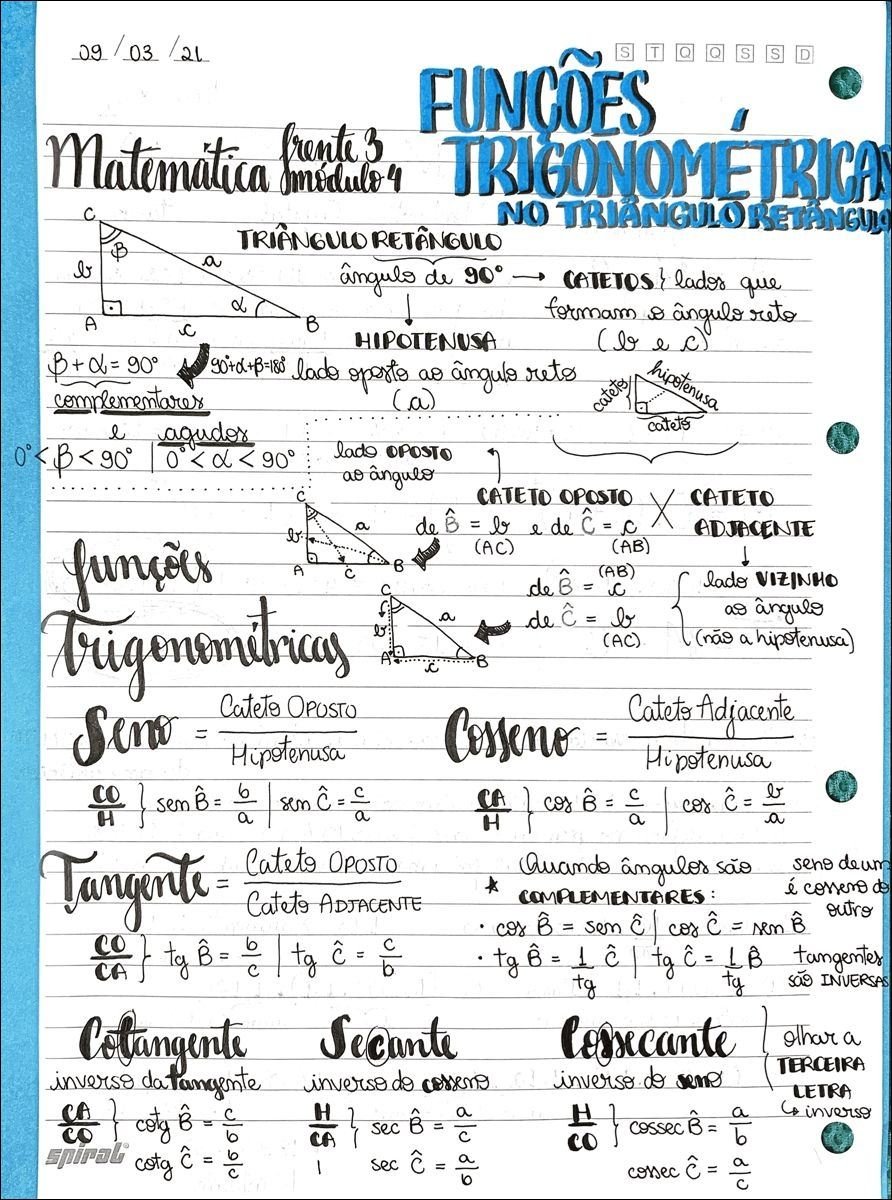 09/03/21
S T Q Q S S D
FUNÇÕES
TRIGONOMÉTRICAS
NO TRIÂNGULO RETÂNGULO
Matemática frente 3
módulo 4
C
β
b
a
α
A
c
B
TRIÂNGULO RETÂNGULO
ângulo de 90° → CATETOS } lados que
formam o ângulo reto
(b e c)
HIPOTENUSA
lado oposto ao ângulo reto
(a)
β + α = 90°
90°+α+β=180°
complementares
e agudos
0° < β < 90° | 0° < α < 90°
cateto
hipotenusa
cateto
lado OPOSTO
ao ângulo
CATETO OPOSTO X CATETO
ADJACENTE
de B̂ = b e de Ĉ = c
(AC) (AB)
C
b
a
A
c
B
(AB)
de B̂ = c
de Ĉ = b
(AC)
lado VIZINHO
ao ângulo
(não a hipotenusa)
C
b
a
A
c
B
funções
Trigonométricas
Seno = Cateto OPOSTO
Hipotenusa
Cosseno = Cateto Adjacente
Hipotenusa
CO/H } sen B̂ = b/a | sen Ĉ = c/a
CA/H } cos B̂ = c/a | cos Ĉ = b/a
Tangente = Cateto OPOSTO
Cateto ADJACENTE
CO/CA } tg B̂ = b/c | tg Ĉ = c/b
★ Quando ângulos são
COMPLEMENTARES:
· cos B̂ = sen Ĉ | cos Ĉ = sen B̂
· tg B̂ = 1/tg Ĉ | tg Ĉ = 1/tg B̂
seno de um
é cosseno do
outro
tangentes
são INVERSAS
Cotangente
inverso da tangente
CA/CO } cotg B̂ = c/b
cotg Ĉ = b/c
Secante
inverso do cosseno
H/CA } sec B̂ = a/c
sec Ĉ = a/b
Cossecante
inverso do seno
H/CO } cossec B̂ = a/b
cossec Ĉ = a/c
olhar a
TERCEIRA
LETRA
↳ inverso
spiral®